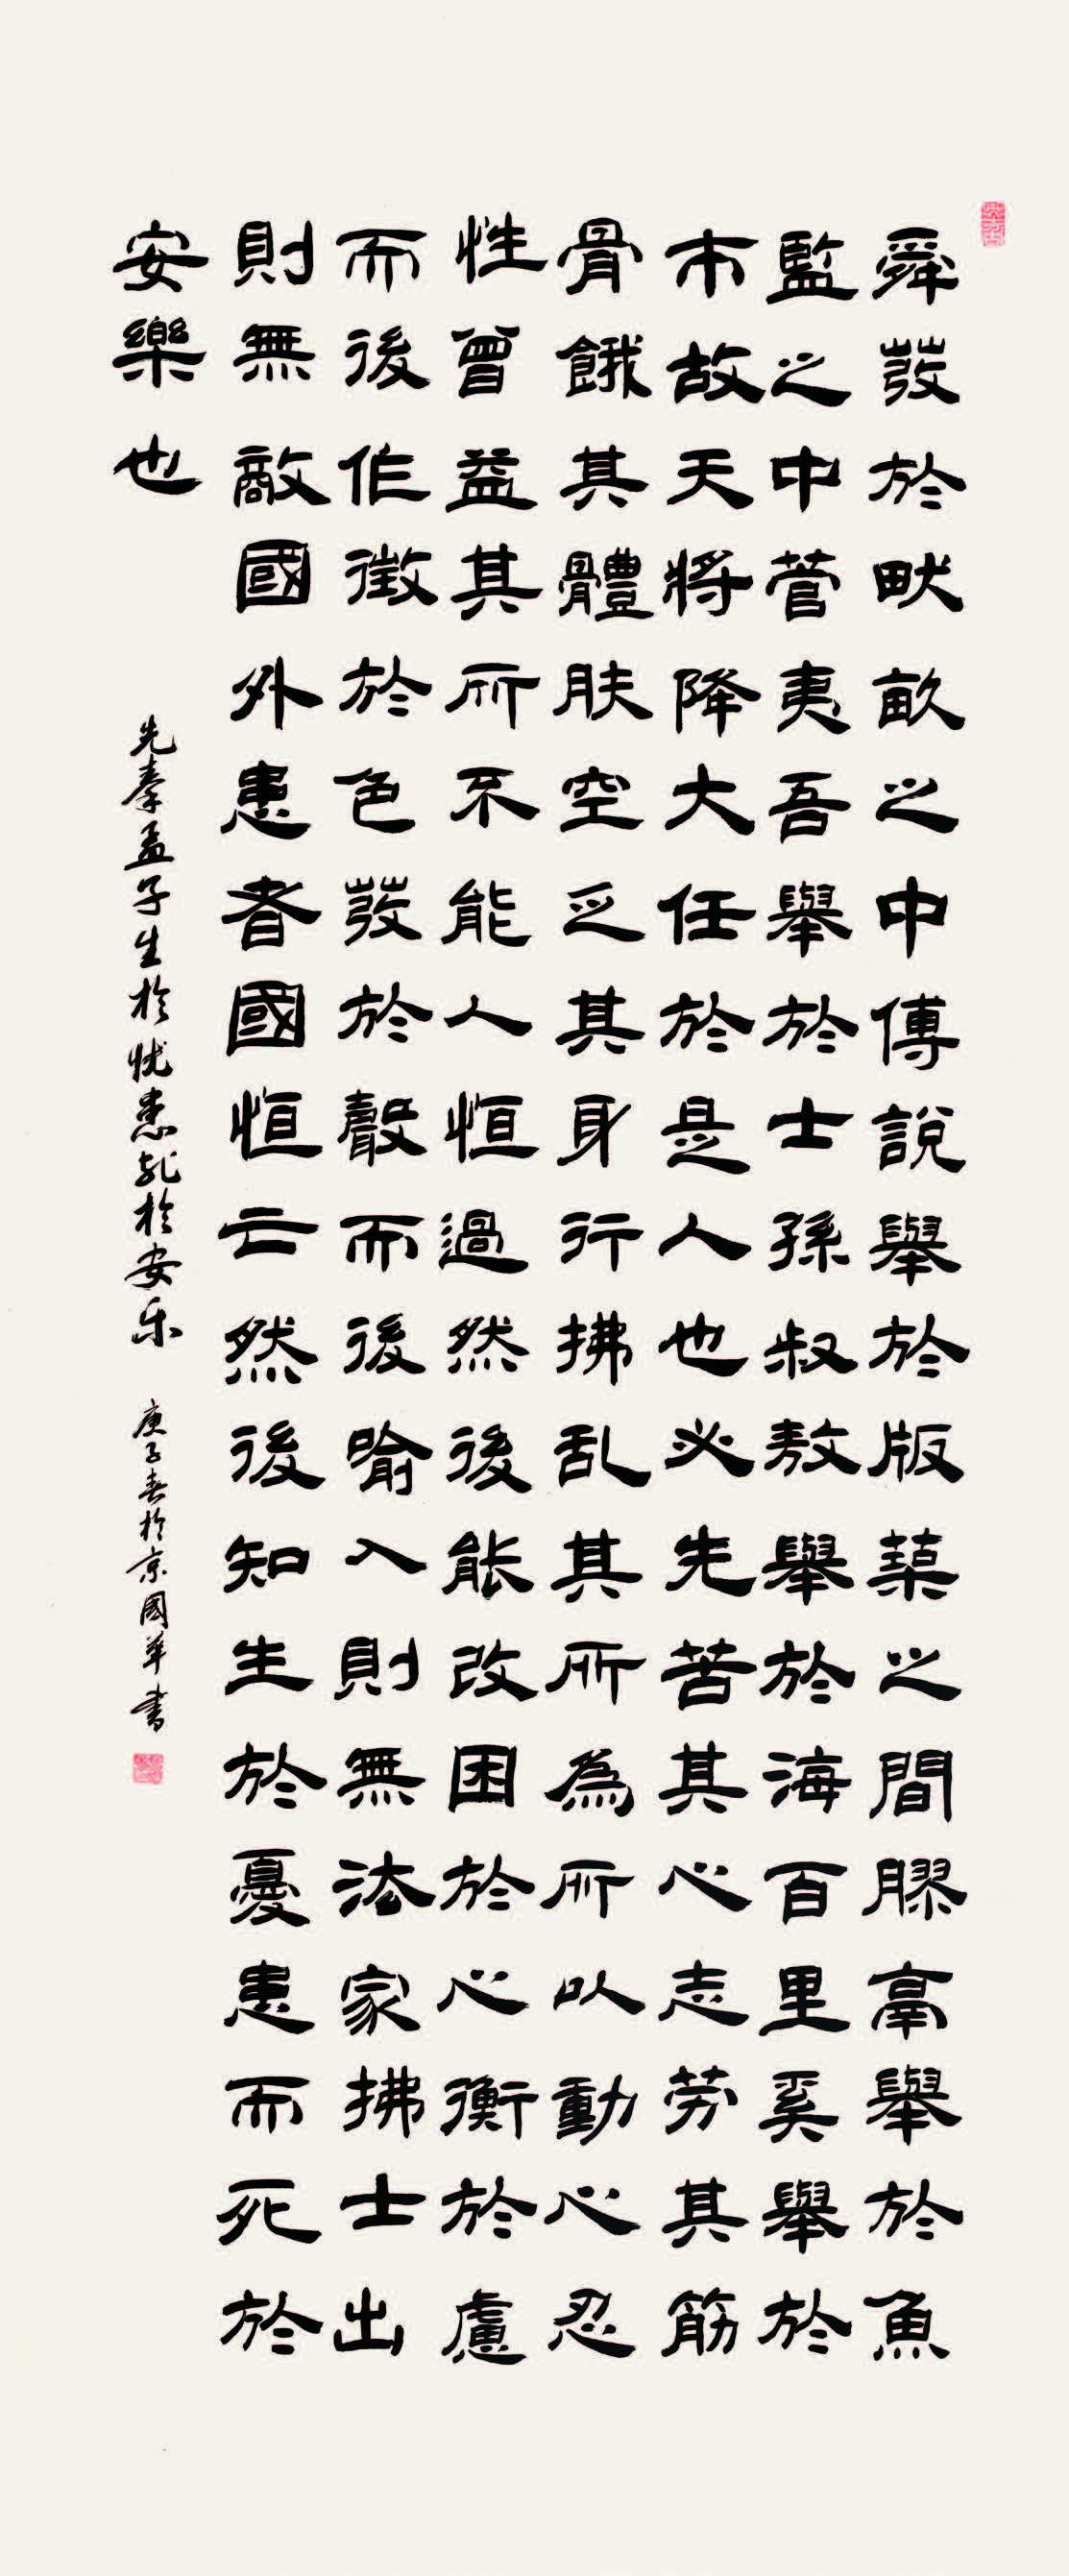 舜發於畎畝之中傅說舉於版築之間膠鬲舉於魚
監之中管夷吾舉於士孫叔敖舉於海百里奚舉於
市故天將降大任於是人也必先苦其心志劳其筋
骨餓其體肤空乏其身行拂乱其所為所以動心忍
性曾益其所不能人恒過然後能改困於心衡於慮
而後作徵於色發於聲而後喻入則無法家拂士出
則無敵國外患者國恒亡然後知生於憂患而死於
安樂也
先秦孟子生於忧患死於安乐 庚子春於京國華書